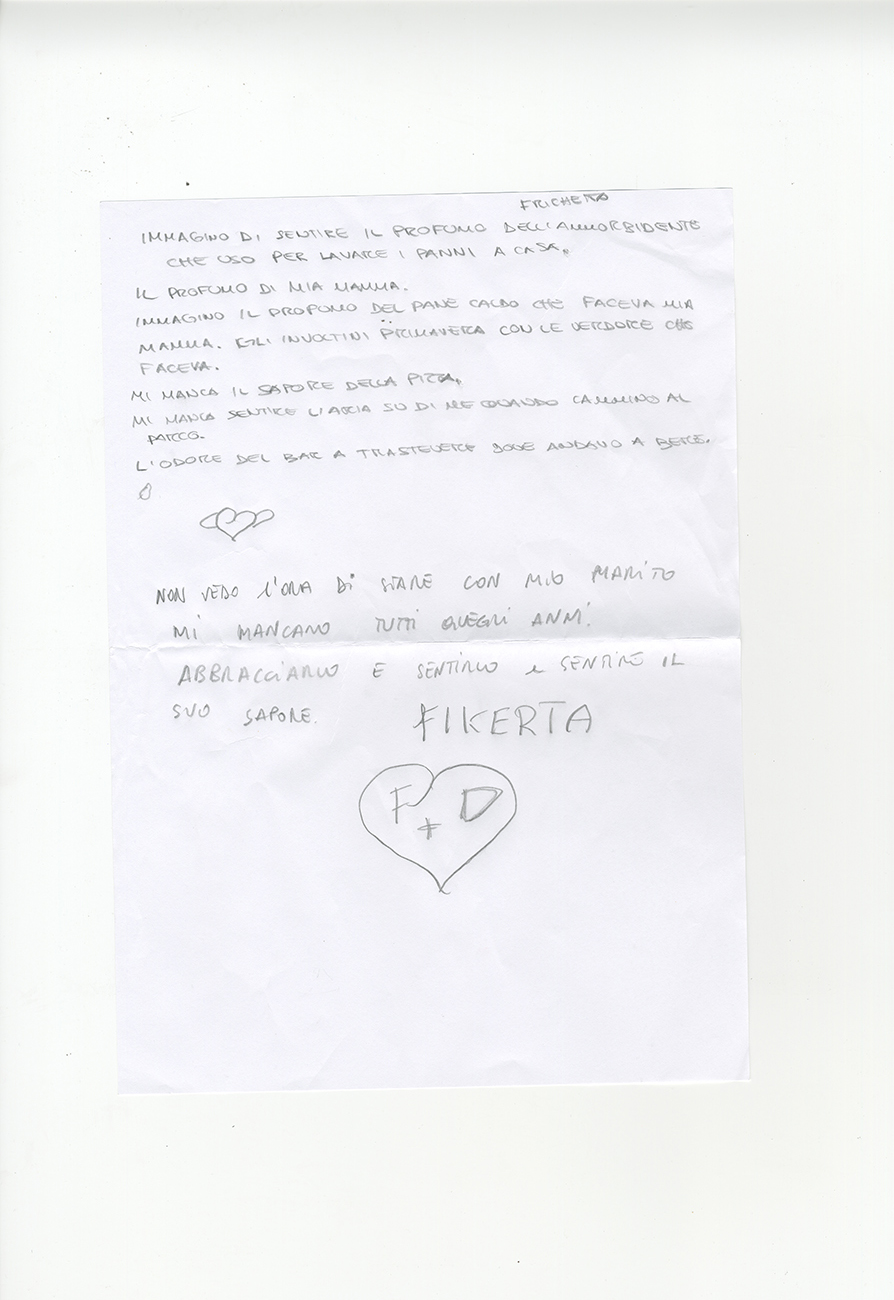 IMMAGINO DI SENTIRE IL PROFUMO DELL'AMMORBIDENTE
CHE USO PER LAVARE I PANNI A CASA.
IL PROFUMO DI MIA MAMMA.
IMMAGINO IL PROFUMO DEL PANE CALDO CHE FACEVA MIA
MAMMA. GLI INVOLTINI PRIMAVERA CON LE VERDURE CHE
FACEVA.
MI MANCA IL SAPORE DELLA PIZZA.
MI MANCA SENTIRE L'ARIA SU DI ME QUANDO CAMMINO AL
PARCO.
L'ODORE DEL BAR A TRASTEVERE DOVE ANDAVO A BERE.
NON VEDO l'ORA Di STARE CON MIO MARiTO
Mi MANCANO TUTTi QUEGLI ANNi.
ABBRACCiARLO E SENTiRLO e SENTiRE IL
SUO SAPORE. FIKERTA
F + D